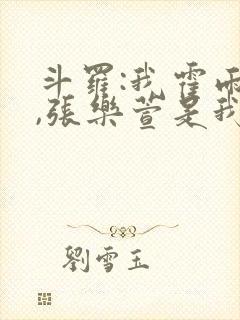 斗羅:我霍雨
,張樂萱是我
劉雪玉